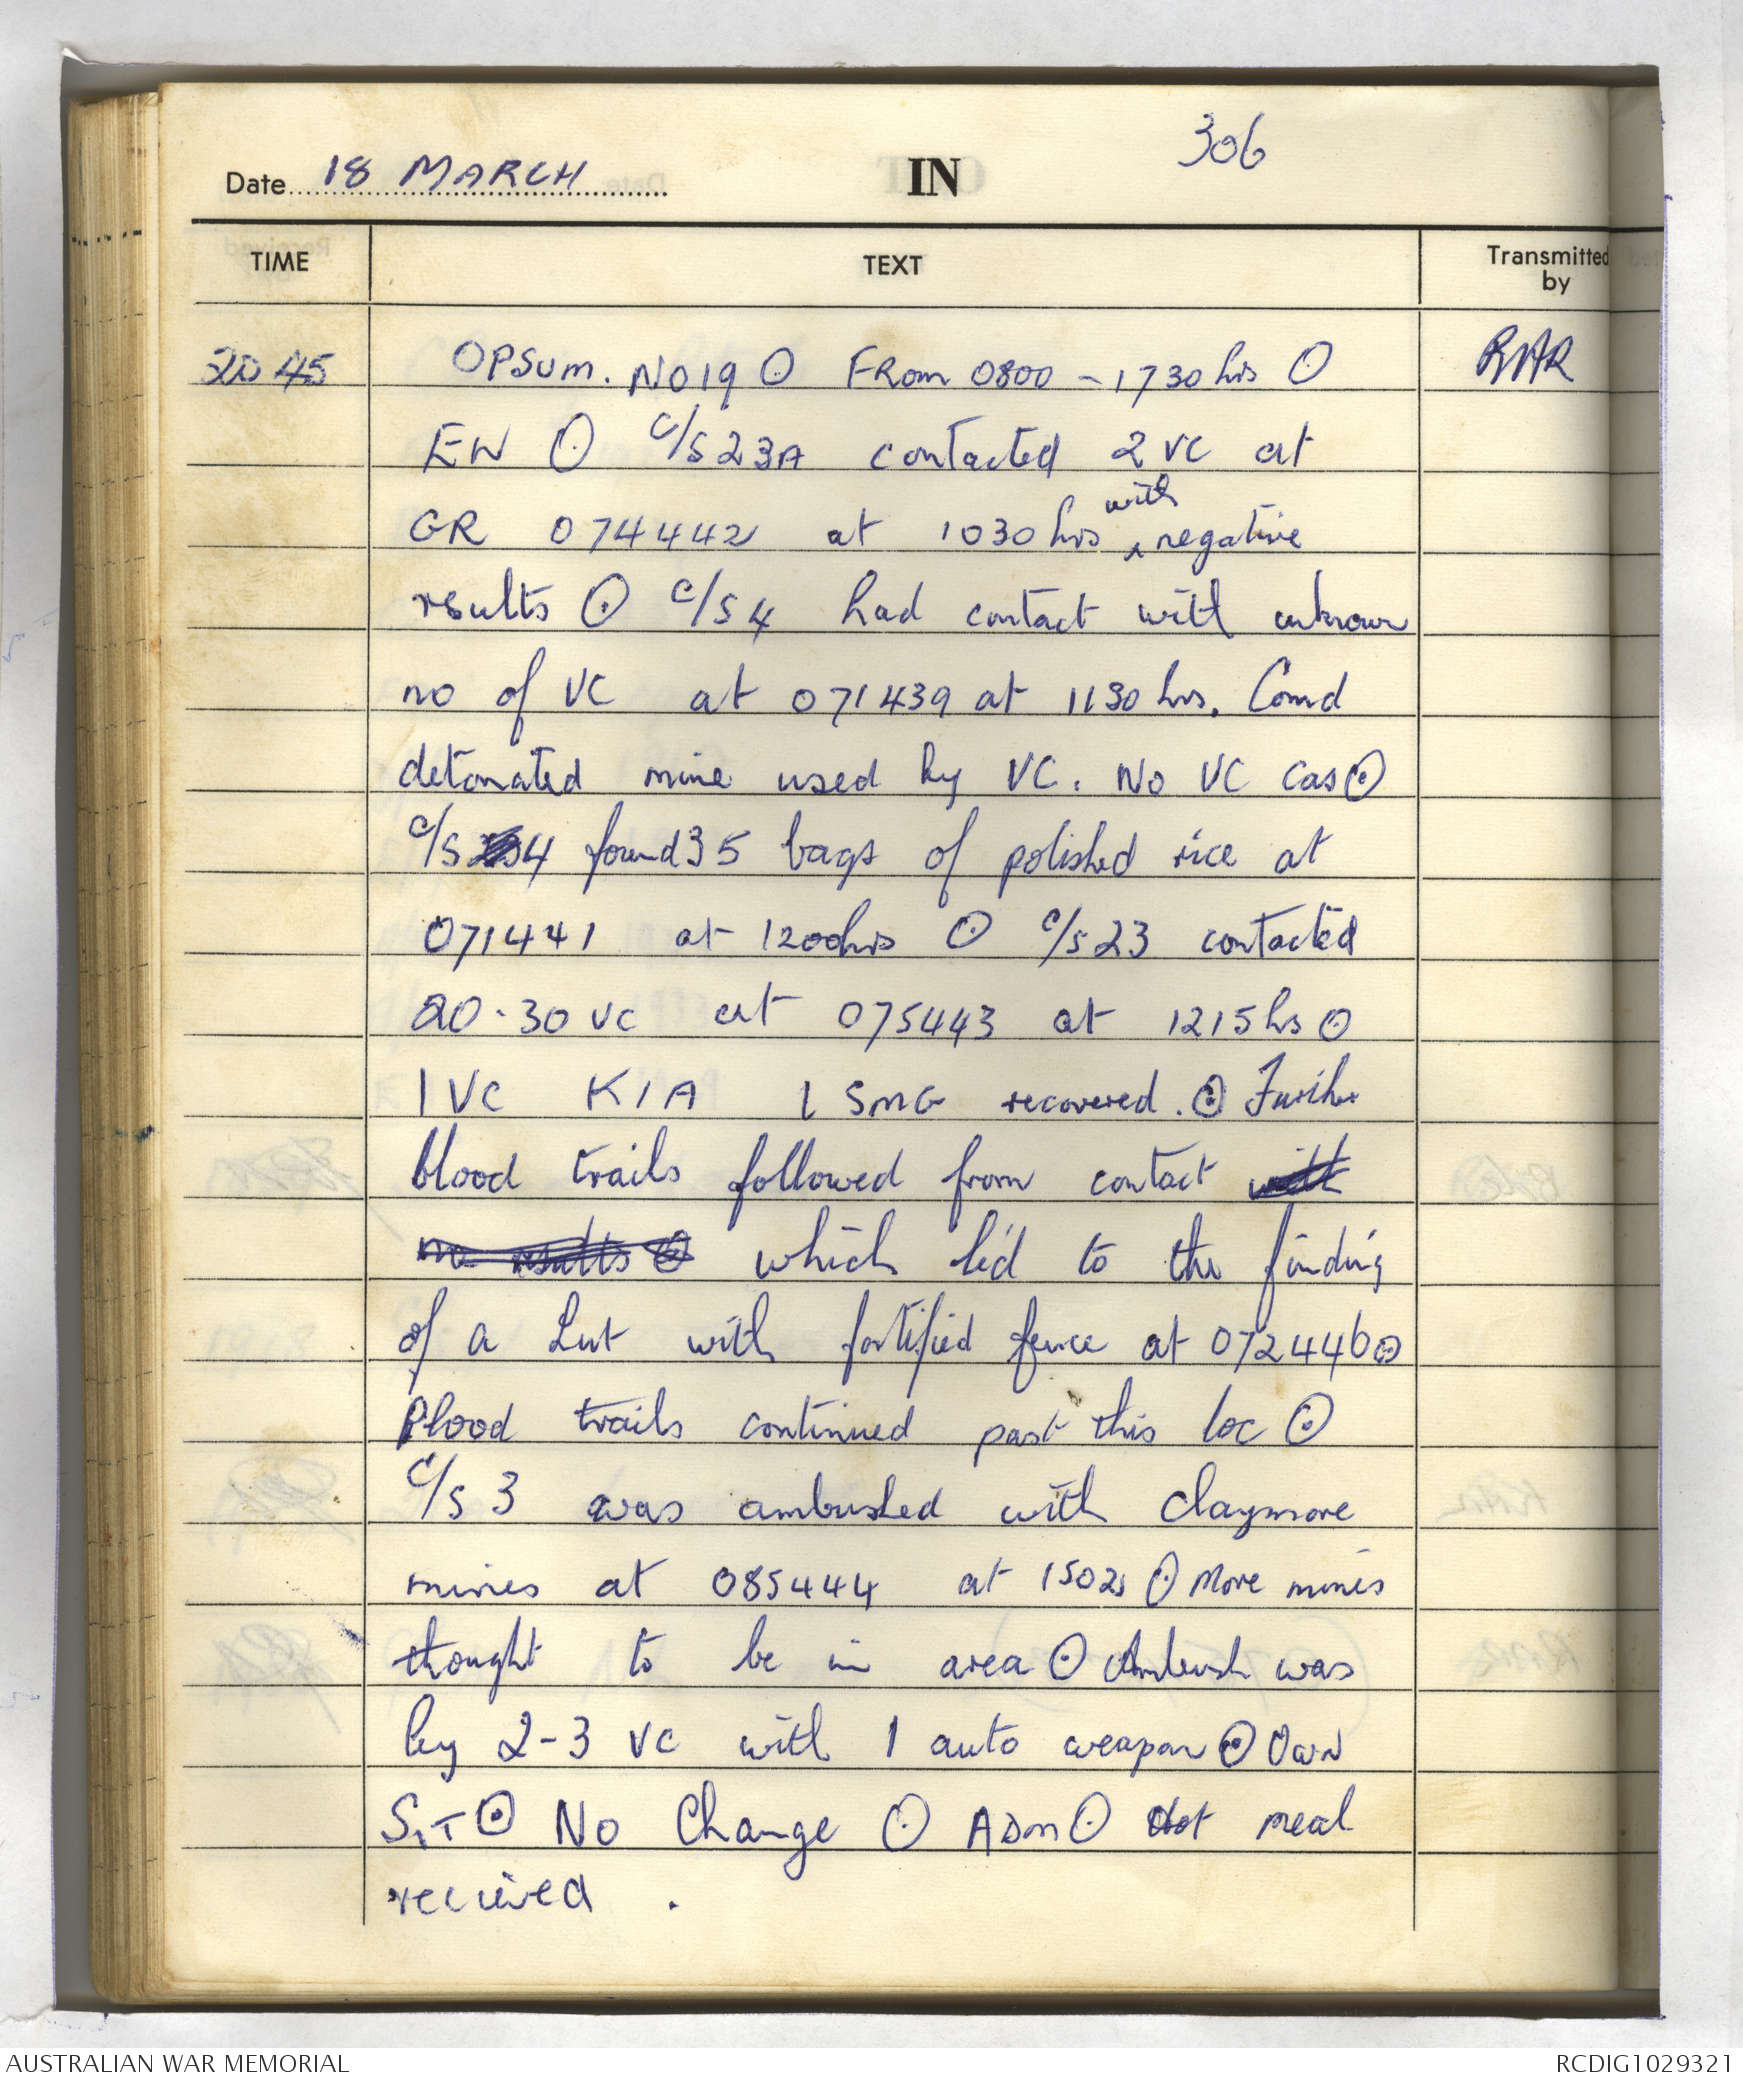 306
Date 18 MARCH
IN
TIME TEXT Transmitted by
2045 OPSUM. NO19 ⊙ FROM 0800 - 1730 hrs ⊙ RAR
EN ⊙ C/S 23A contacted 2 VC at
GR 074442 at 1030 hrs ^with negative
results ⊙ C/S 4 had contact with unknown
no of VC at 071439 at 1130 hrs. Comd
detonated mine used by VC. No VC cas ⊙
C/S 4 found 35 bags of polished rice at
071441 at 1200hrs ⊙ C/S 23 contacted
20-30 VC at 075443 at 1215 hrs ⊙
1 VC KIA 1 SMG recovered. ⊙ Further
blood trails followed from contact with
no results ⊙ which led to the finding
of a hut with fortified fence at 072446 ⊙
Blood trails continued past this loc ⊙
C/S 3 was ambushed with claymore
mines at 085444 at 1502 ⊙ More mines
thought to be in area ⊙ Ambush was
by 2-3 VC with 1 auto weapon ⊙ Own
SIT ⊙ No Change ⊙ ADM ⊙ Hot meal
recieved .
AUSTRALIAN WAR MEMORIAL RCDIG1029321